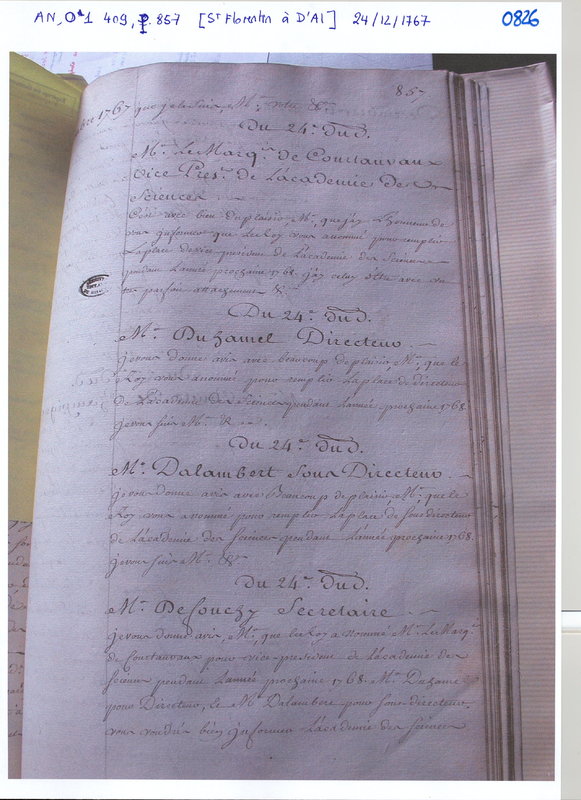 AN, O*1 409, p. 857 [St Florentin à D'Al] 24/12/1767
0826
857
bre 1767 que je le suis, Mr. votre &c.
Du 24e. dud.
Mr. Le Marq.is de Courtanvaux
Vice Presid.t de L'academie des
Sciences
C'est avec bien du plaisir Mr., que j'ay L'honneur de
vous informer que Le Roy vous a nommé pour remplir
La place de vice president de L'academie des Sciences
pendant L'année prochaine 1768. j'ay celuy d'être avec un
tres parfait attachement &c.
Du 24e. dud.
Mr. Duhamel Directeur.
je vous donne avis avec beaucoup de plaisir, Mr., que le
Roy vous a nommé pour remplir La place de directeur
de L'academie des Sciences pendant L'année prochaine 1768.
je vous suis Mr. &c.
Du 24e. dud.
Mr. Dalambert Sous Directeur.
je vous donne avis avec Beaucoup de plaisir, Mr. que le
Roy vous a nommé pour remplir La place de sous directeur
de L'academie des sciences pendant L'année prochaine 1768.
je vous suis Mr. &c.
Du 24e. dud.
Mr. De fouchy Secretaire
je vous donne avis, Mr., que le Roy a nommé Mr. Le Marq.is
de Courtanvaux pour vice-president de L'academie des
sciences pendant L'année prochaine 1768. Mr. Duhamel
pour Directeur, et Mr. Dalambert pour sous-directeur.
vous voudrés bien jnformer L'academie des sciences